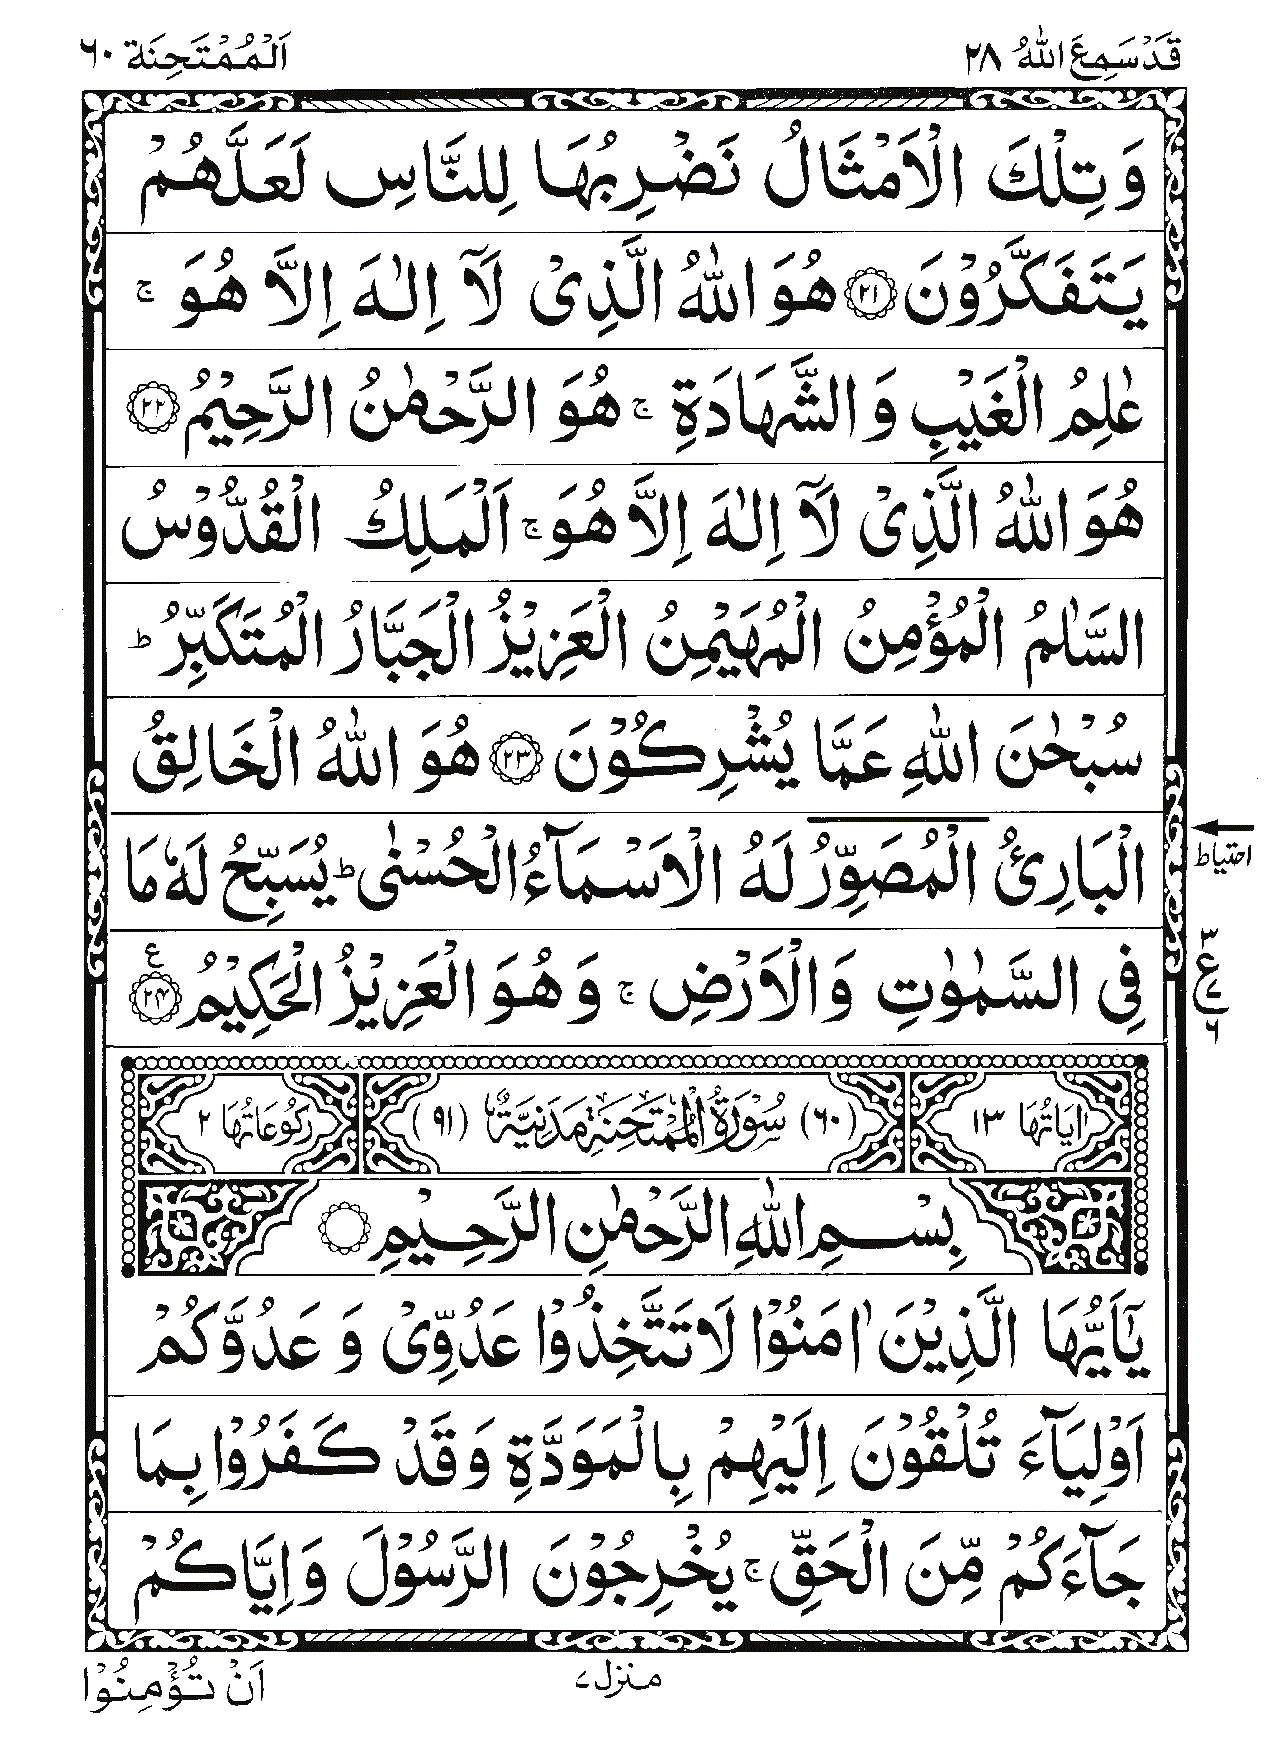 قَدْ سَمِعَ اللّٰهُ ٢٨
اَلْمُمْتَحِنَة ٦٠
وَ تِلْكَ الْاَمْثَالُ نَضْرِبُهَا لِلنَّاسِ لَعَلَّهُمْ
يَتَفَكَّرُوْنَ ٢١ هُوَ اللّٰهُ الَّذِىْ لَآ اِلٰهَ اِلَّا هُوَ ج
عٰلِمُ الْغَيْبِ وَ الشَّهَادَةِ ج هُوَ الرَّحْمٰنُ الرَّحِيْمُ ٢٢
هُوَ اللّٰهُ الَّذِىْ لَآ اِلٰهَ اِلَّا هُوَ ج اَلْمَلِكُ الْقُدُّوْسُ
السَّلٰمُ الْمُؤْمِنُ الْمُهَيْمِنُ الْعَزِيْزُ الْجَبَّارُ الْمُتَكَبِّرُ ط
سُبْحٰنَ اللّٰهِ عَمَّا يُشْرِكُوْنَ ٢٣ هُوَ اللّٰهُ الْخَالِقُ
الْبَارِئُ الْمُصَوِّرُ لَهُ الْاَسْمَآءُ الْحُسْنٰى ط يُسَبِّحُ لَهٗ مَا
احتیاط
فِى السَّمٰوٰتِ وَ الْاَرْضِ ج وَ هُوَ الْعَزِيْزُ الْحَكِيْمُ ٢٤ ع
٣ ع ٧ ٦
اٰيَاتُهَا ١٣ (٦٠) سُوْرَةُ الْمُمْتَحِنَةِ مَدَنِيَّةٌ (٩١) رُكُوْعَاتُهَا ٢
بِسْمِ اللّٰهِ الرَّحْمٰنِ الرَّحِيْمِ
يٰٓاَيُّهَا الَّذِيْنَ اٰمَنُوْا لَا تَتَّخِذُوْا عَدُوِّىْ وَ عَدُوَّكُمْ
اَوْلِيَآءَ تُلْقُوْنَ اِلَيْهِمْ بِالْمَوَدَّةِ وَ قَدْ كَفَرُوْا بِمَا
جَآءَكُمْ مِّنَ الْحَقِّ ج يُخْرِجُوْنَ الرَّسُوْلَ وَ اِيَّاكُمْ
منزل ٧
اَنْ تُؤْمِنُوْا